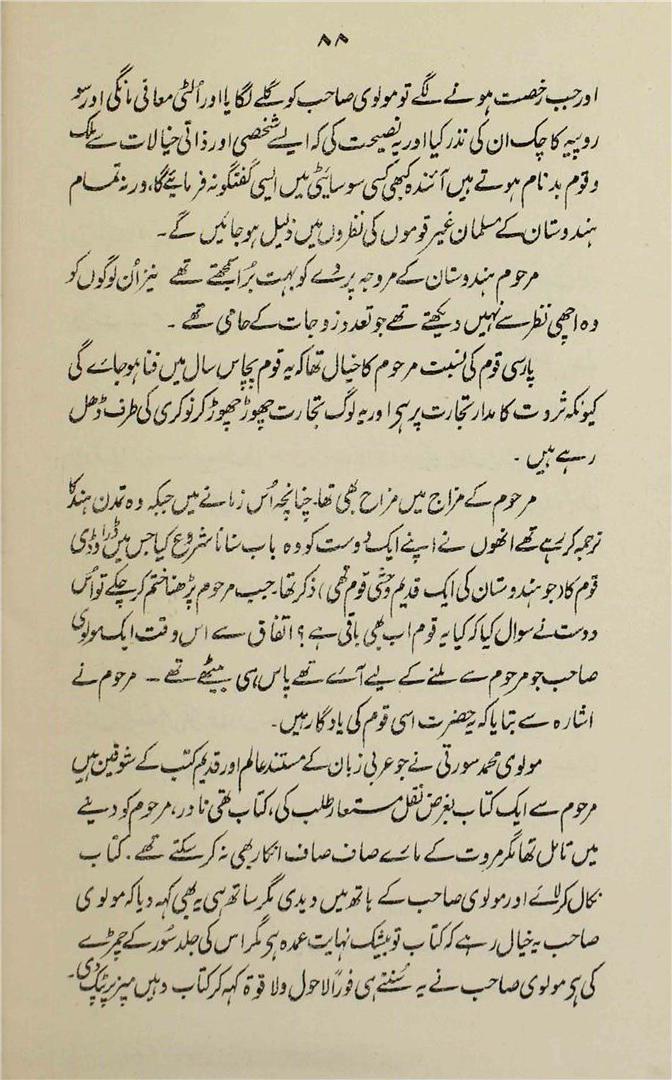 ۸۸
اور جب رخصت ہونے لگے تو مولوی صاحب کو گلے لگایا اور اُلٹی معافی مانگی اور سو
روپیہ کا چک ان کی نذر کیا اور یہ نصیحت کی کہ ایسے شخصی اور ذاتی خیالات سے ملک
و قوم بدنام ہوتے ہیں آئندہ کبھی کسی سوسائیٹی میں ایسی گفتگو نہ فرمائیے گا، ورنہ تمام
ہندوستان کے مسلمان غیر قوموں کی نظروں میں ذلیل ہو جائیں گے۔
مرحوم ہندوستان کے مروجہ پردے کو بہت بُرا سمجھتے تھے نیز اُن لوگوں کو
وہ اچھی نظر سے نہیں دیکھتے تھے جو تعدد زوجات کے حامی تھے۔
پارسی قوم کی نسبت مرحوم کا خیال تھا کہ یہ قوم پچاس سال میں فنا ہو جاے گی
کیونکہ ثروت کا مدار تجارت پر ہی اور یہ لوگ تجارت چھوڑ چھوڑ کر نوکری کی طرف ڈھل
رہے ہیں۔
مرحوم کے مزاج میں مزاح بھی تھا۔ چنانچہ اُس زمانے میں جبکہ وہ تمدن ہند کا
ترجمہ کر رہے تھے انھوں نے اپنے ایک دوست کو وہ باب سنانا شروع کیا جس میں ڈراوڈی
قوم کا (جو ہندوستان کی ایک قدیم وحشی قوم تھی) ذکر تھا۔ جب مرحوم پڑھنا ختم کر چکے تو اُس
دوست نے سوال کیا کہ کیا یہ قوم اب بھی باقی ہے؟ اتفاق سے اس وقت ایک مولوی
صاحب جو مرحوم سے ملنے کے لیے آے تھے پاس ہی بیٹھے تھے۔ مرحوم نے
اشارہ سے بتایا کہ یہ حضرت اسی قوم کی یادگار ہیں۔
مولوی محمد سورتی نے جو عربی زبان کے مستند عالم اور قدیم کتب کے شوقین ہیں
مرحوم سے ایک کتاب بغرض نقل مستعار طلب کی، کتاب تھی نادر، مرحوم کو دینے
میں تامل تھا مگر مروت کے مارے صاف صاف انکار بھی نہ کر سکتے تھے۔ کتاب
نکال کر لائے اور مولوی صاحب کے ہاتھ میں دیدی مگر ساتھ ہی یہ بھی کہہ دیا کہ مولوی
صاحب یہ خیال رہے کہ کتاب تو بیشک نہایت عمدہ ہی مگر اس کی جلد سُور کے چمڑے
کی ہی مولوی صاحب نے یہ سُنتے ہی فوراً لاحول ولا قوۃ کہہ کر کتاب وہیں میز پر پٹک دی۔